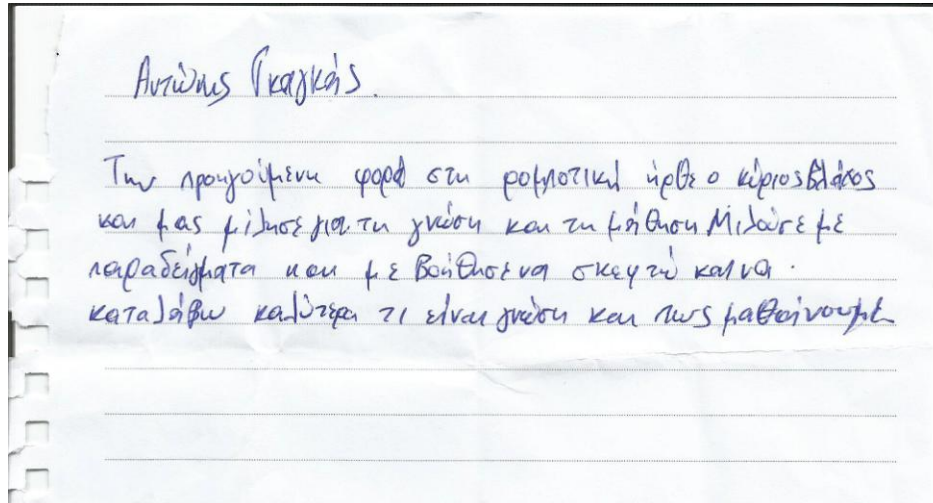 Αντώνης Γκαγκάς.
Την προηγούμενη φορά στη ρομποτική ήρθε ο κύριος
και μας μίλησε για τη γνώση και τη μάθηση Μιλούσε με
παραδείγματα και με βοήθησε να σκεφτώ και να
καταλάβω καλύτερα τι είναι γνώση και πως μαθαίνουμε